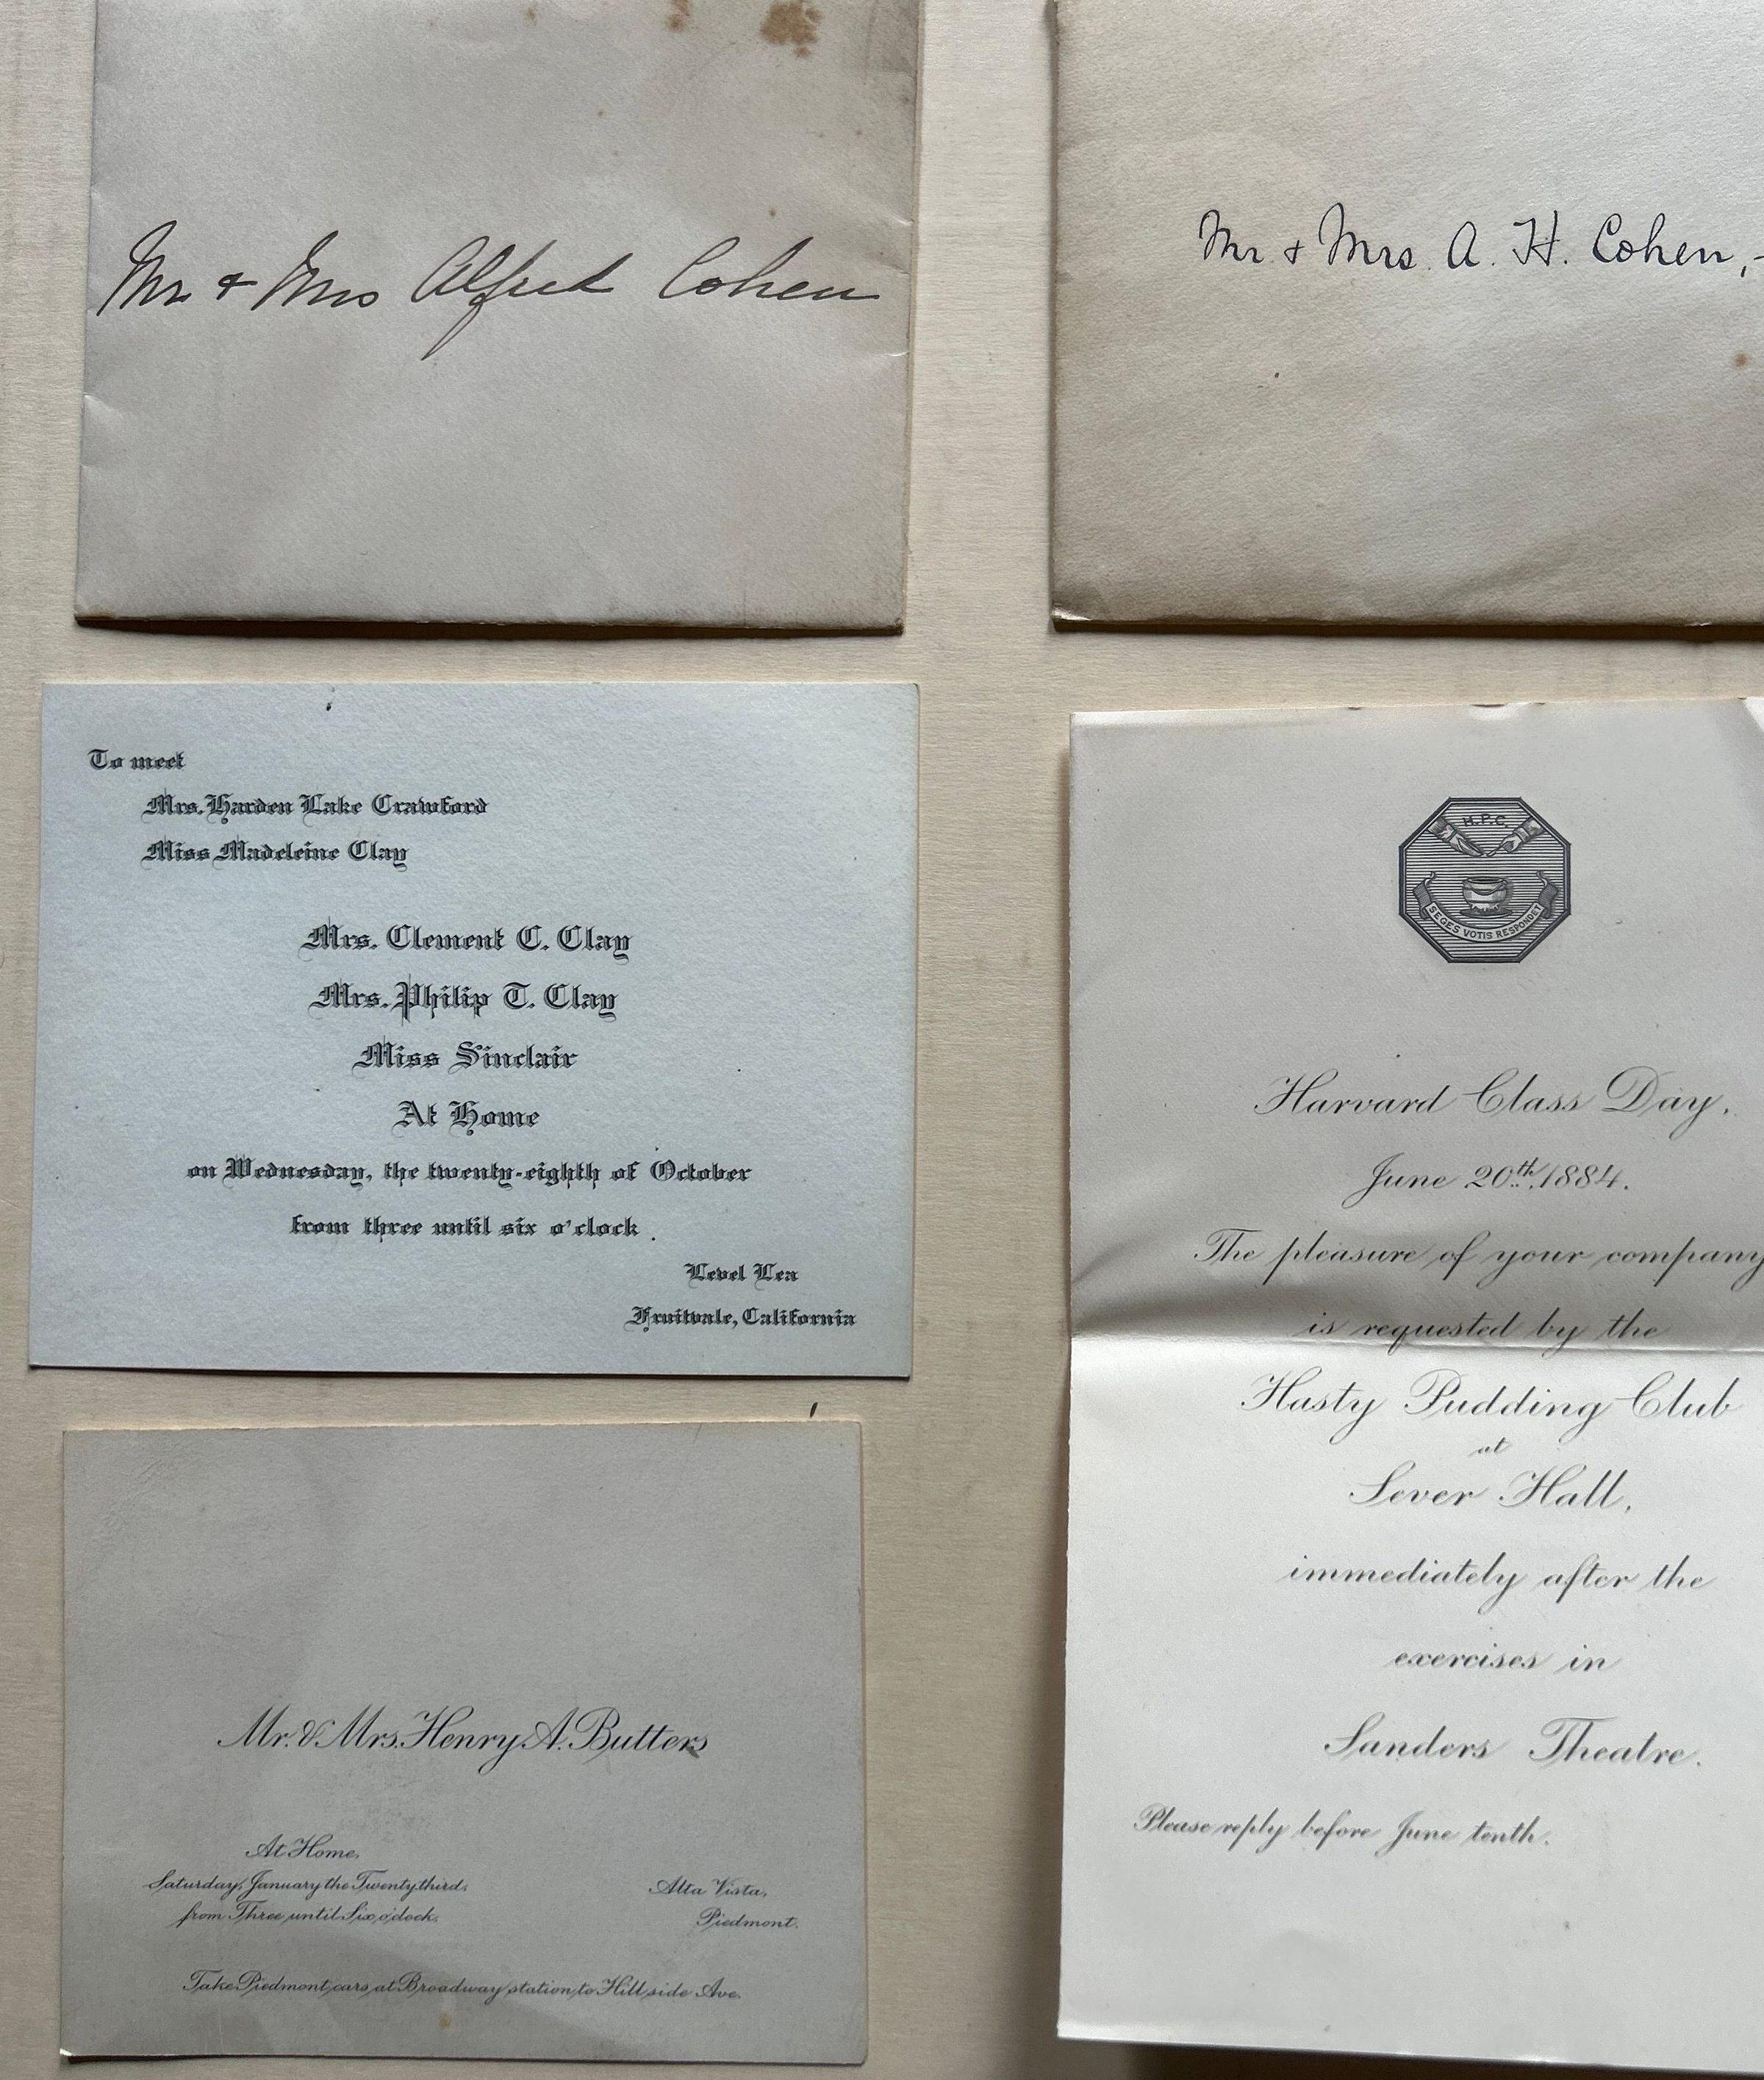 Mr & Mrs Alfred Cohen
Mr & Mrs. A. H. Cohen,
To meet
Mrs. Harden Lake Crawford
Miss Madeleine Clay
Mrs. Clement C. Clay
Mrs. Philip T. Clay
Miss Sinclair
At Home
on Wednesday, the twenty-eighth of October
from three until six o'clock.
Level Lea
Fruitvale, California
Mr. & Mrs. Henry A. Butters
At Home,
Saturday, January the Twenty third,
from Three until Six o'clock.
Alta Vista,
Piedmont.
Take Piedmont cars at Broadway station to Hillside Ave.
H.P.C.
SEGES VOTIS RESPONDET
Harvard Class Day,
June 20th, 1884.
The pleasure of your company
is requested by the
Hasty Pudding Club
at
Sever Hall,
immediately after the
exercises in
Sanders Theatre.
Please reply before June tenth.